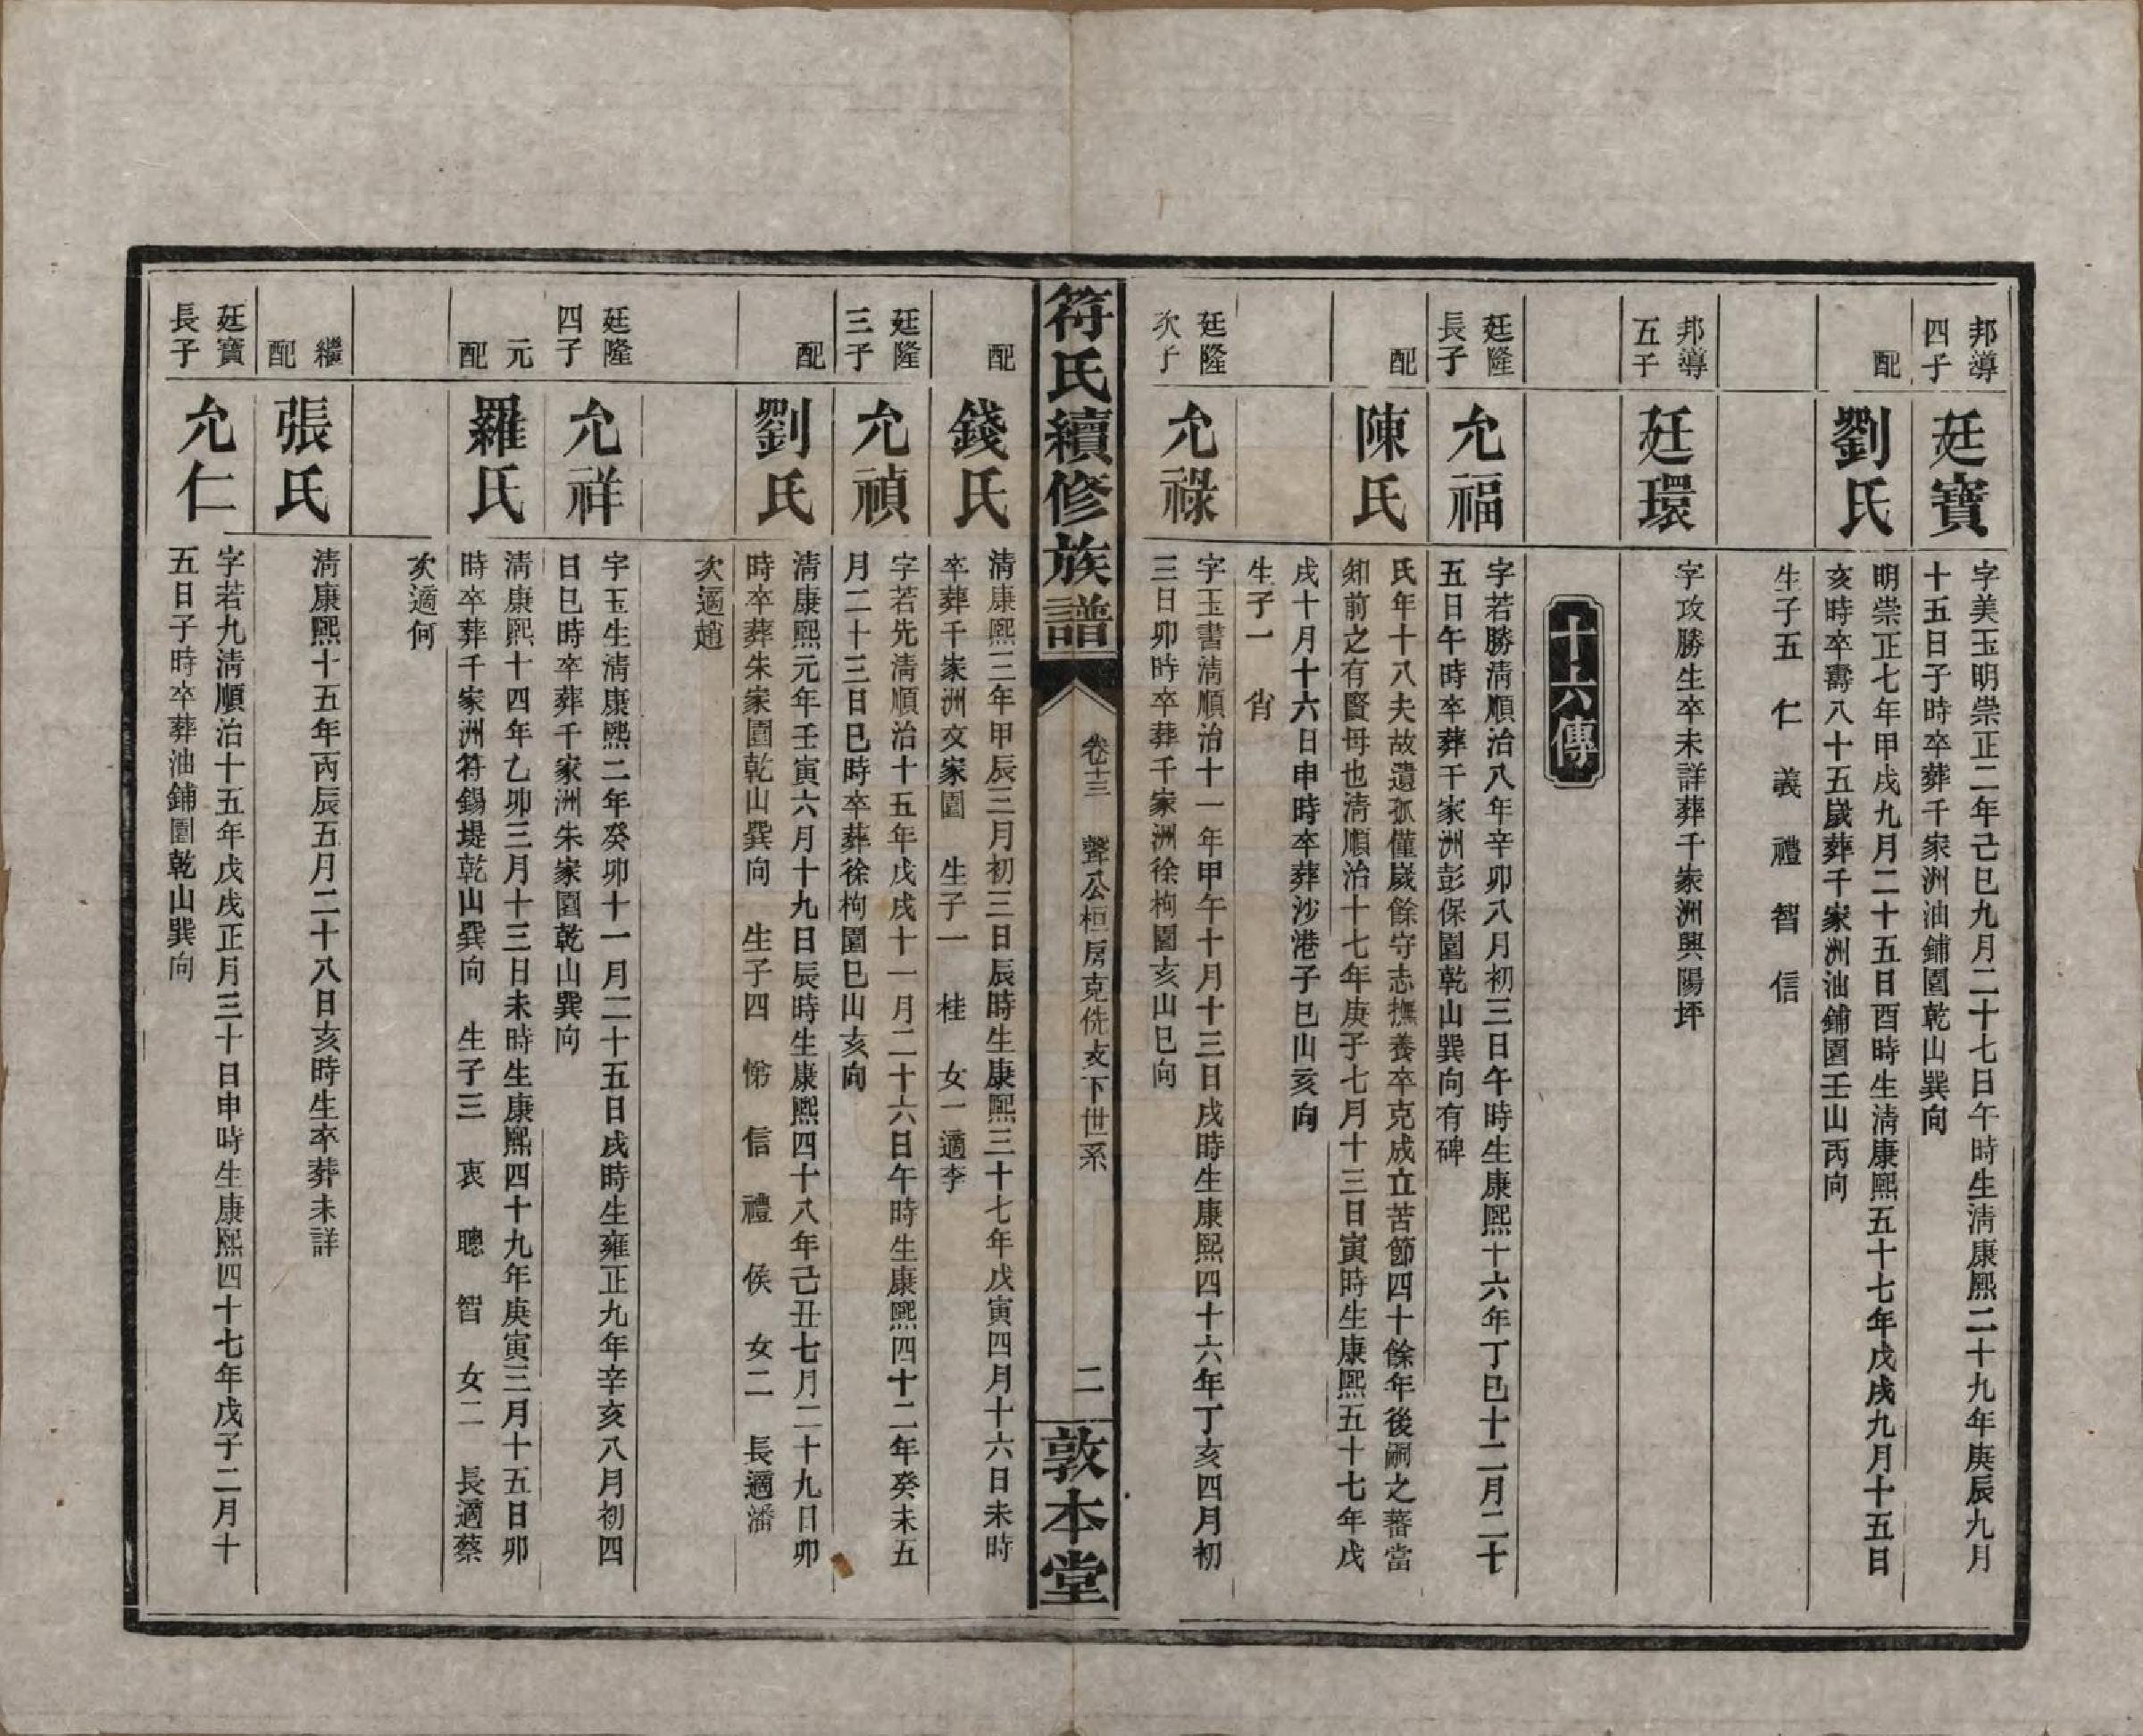 邦導
四子
廷寶
字美玉明崇正二年己巳九月二十七日午時生淸康熙二十九年庚辰九月
十五日子時卒葬千家洲油鋪園乾山巽向
配
劉氏
明崇正七年甲戌九月二十五日酉時生淸康熙五十七年戊戌九月十五日
亥時卒壽八十五歲葬千家洲油鋪園壬山丙向
生子五 仁 義 禮 智 信
邦導
五子
廷環
字攻勝生卒未詳葬千家洲興陽坪
十六傳
廷隆
長子
允福
字若勝淸順治八年辛卯八月初三日午時生康熙十六年丁巳十二月二十
五日午時卒葬千家洲彭保園乾山巽向有碑
配
陳氏
氏年十八夫故遺孤僅歲餘守志撫養卒克成立苦節四十餘年後嗣之蕃當
知前之有賢母也淸順治十七年庚子七月十三日寅時生康熙五十七年戊
戌十月十六日申時卒葬沙港子巳山亥向
生子一 肖
廷隆
次子
允祿
字玉書淸順治十一年甲午十月十三日戌時生康熙四十六年丁亥四月初
三日卯時卒葬千家洲徐枸園亥山巳向
符氏續修族譜
卷十三 聲公桓房克侁支下世系
二
敦本堂
配
錢氏
淸康熙三年甲辰三月初三日辰時生康熙三十七年戊寅四月十六日未時
卒葬千家洲文家園 生子一 桂 女一適李
廷隆
三子
允禎
字若先淸順治十五年戊戌十一月二十六日午時生康熙四十二年癸未五
月二十三日巳時卒葬徐枸園巳山亥向
配
劉氏
淸康熙元年壬寅六月十九日辰時生康熙四十八年己丑七月二十九日卯
時卒葬朱家園乾山巽向 生子四 悌 信 禮 侯 女二 長適潘
次適趙
廷隆
四子
允祥
字玉生淸康熙二年癸卯十一月二十五日戌時生雍正九年辛亥八月初四
日巳時卒葬千家洲朱家園乾山巽向
元
配
羅氏
淸康熙十四年乙卯三月十三日未時生康熙四十九年庚寅三月十五日卯
時卒葬千家洲符錫堤乾山巽向 生子三 衷 聰 智 女二 長適蔡
次適何
繼
配
張氏
淸康熙十五年丙辰五月二十八日亥時生卒葬未詳
廷寶
長子
允仁
字若九淸順治十五年戊戌正月三十日申時生康熙四十七年戊子二月十
五日子時卒葬油鋪園乾山巽向